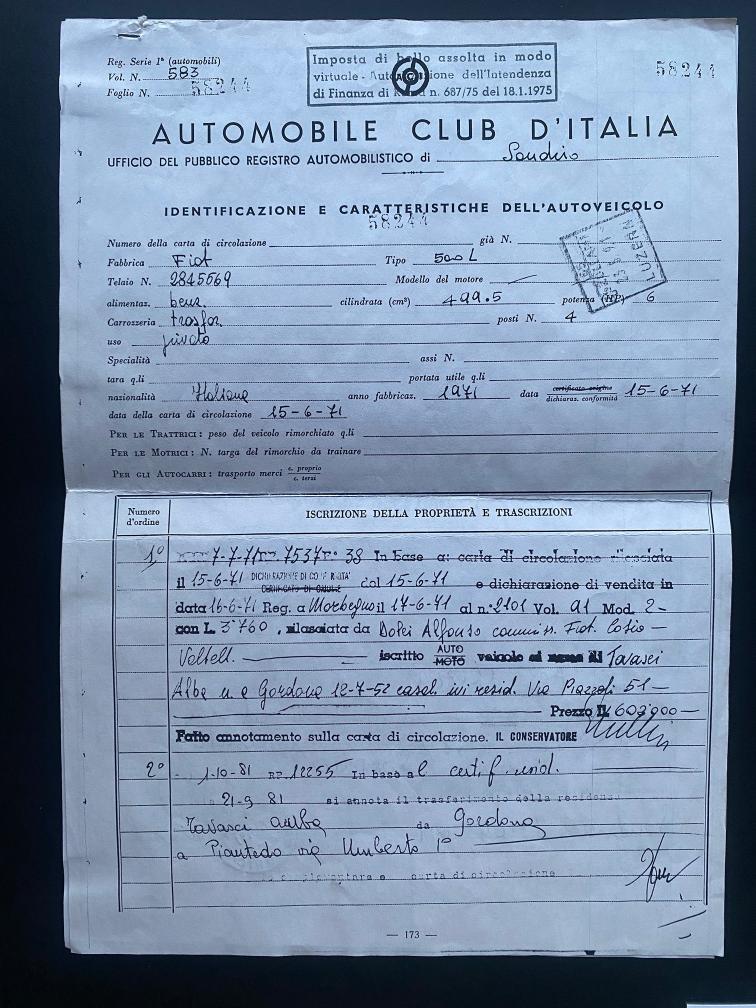 Reg. Serie 1ª (automobili)
Vol. N. 583
Foglio N. 58244
Imposta di bollo assolta in modo
virtuale - Autorizzazione dell'Intendenza
di Finanza di Roma n. 687/75 del 18.1.1975
58244
AUTOMOBILE CLUB D'ITALIA
UFFICIO DEL PUBBLICO REGISTRO AUTOMOBILISTICO di Sondrio
IDENTIFICAZIONE E CARATTERISTICHE DELL'AUTOVEICOLO
58244
Numero della carta di circolazione già N.
Fabbrica Fiat Tipo 500 L
Telaio N. 2845569 Modello del motore
LUZERN
alimentaz. benz. cilindrata (cm³) 499.5 potenza (HP) 6
Carrozzeria trasfor. posti N. 4
uso privato
Specialità assi N.
tara q.li portata utile q.li
nazionalità Italiana anno fabbricaz. 1971 data certificato origine dichiaraz. conformità 15-6-71
data della carta di circolazione 15-6-71
PER LE TRATTRICI: peso del veicolo rimorchiato q.li
PER LE MOTRICI: N. targa del rimorchio da trainare
PER GLI AUTOCARRI: trasporto merci c. proprio c. terzi
Numero d'ordine
ISCRIZIONE DELLA PROPRIETÀ E TRASCRIZIONI
1º 7-7-71 7537 38 In base a: carta di circolazione rilasciata
il 15-6-71 DICHIARAZIONE DI CONFORMITA' CERTIFICATO DI ORIGINE del 15-6-71 e dichiarazione di vendita in
data 16-6-71 Reg. a Morbegno il 17-6-71 al n. 2101 Vol. 91 Mod. 2
con L. 3760, rilasciata da Dolci Alfonso commiss. Fiat Cosio
Valtell. iscritto AUTO MOTO veicolo al nome di Tavasci
Alba n. a Gordona 12-7-52 casal. ivi resid. Via Piazzoli 51
Prezzo L. 602000
Fatto annotamento sulla carta di circolazione. IL CONSERVATORE
2º 1-10-81 RP. 12255 In base al certif. resid.
21-9 81 si annota il trasferimento della residenza
Tavasci Alba da Gordona
a Piantedo via Umberto 1º
carta di circolazione
— 173 —